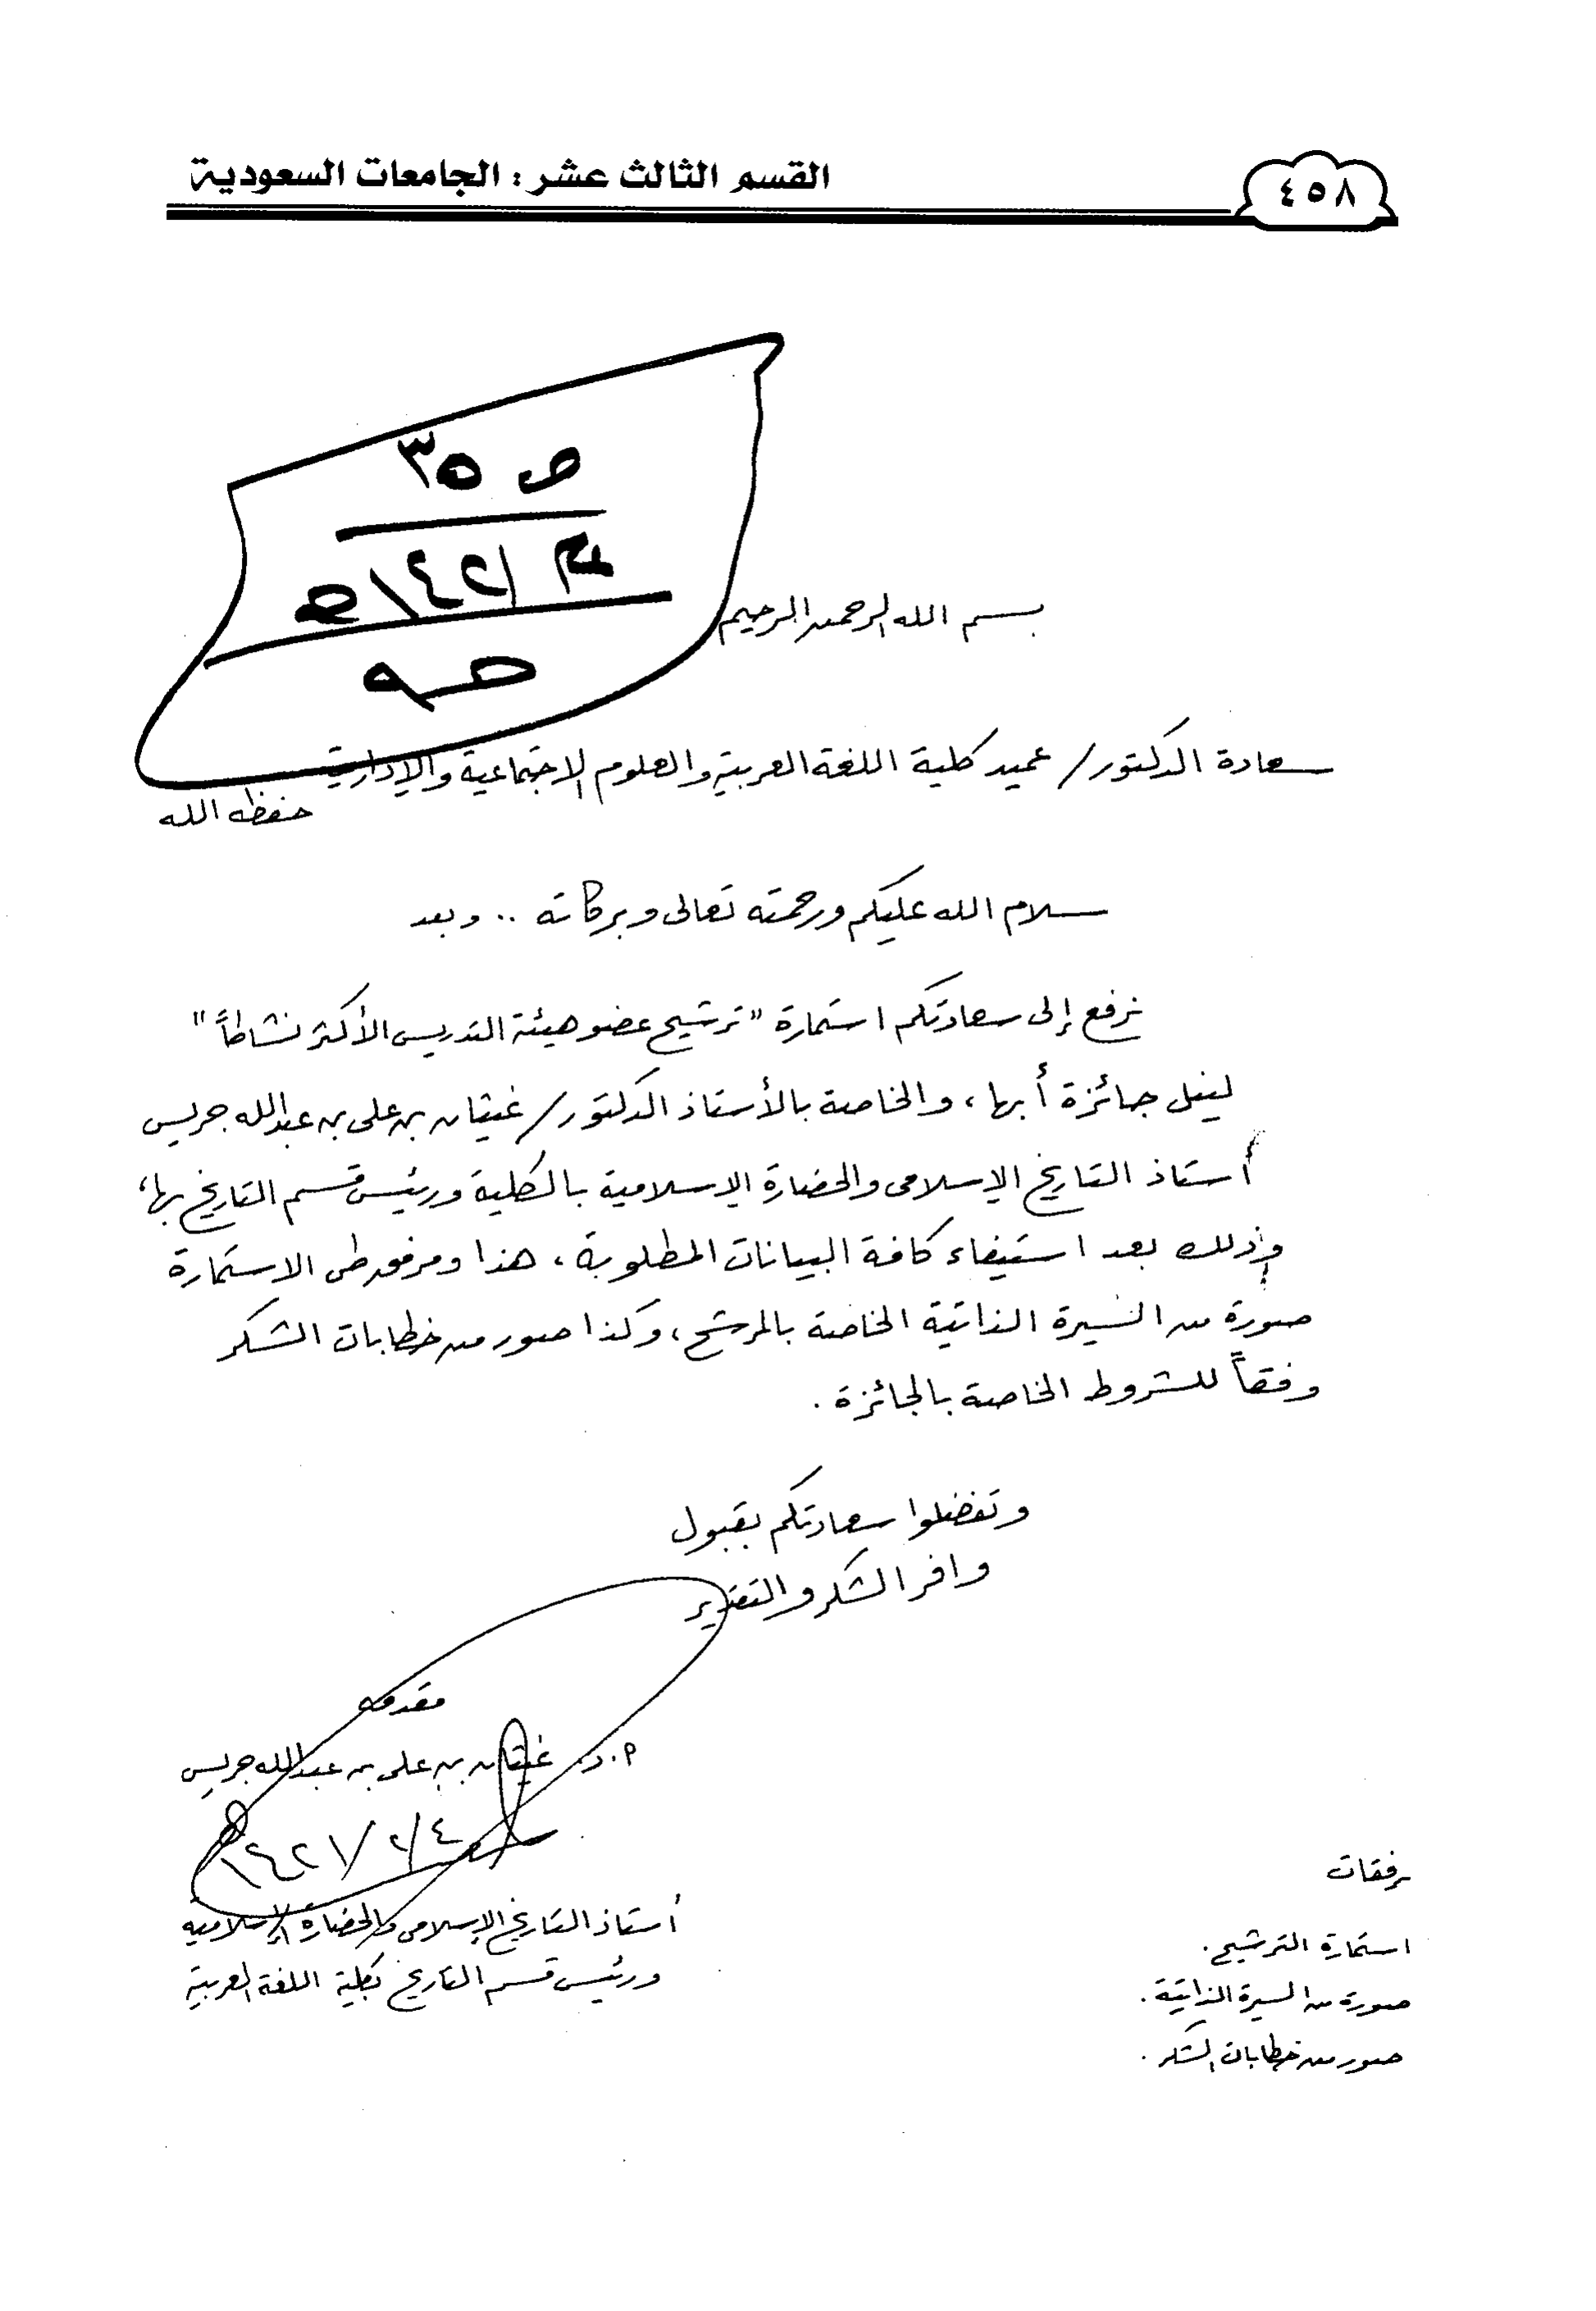 القسم الثالث عشر : الجامعات السعودية
٤٥٨
ص ٣٥
١٤٢١هـ
بسم الله الرحمن الرحيم
سعادة الدكتور/ عميد كلية اللغة العربية والعلوم الاجتماعية والإدارية
حفظه الله
سلام الله عليكم ورحمته تعالى وبركاته .. وبعد
نرفع إلى سعادتكم استمارة "ترشيح عضو هيئة التدريس الأكثر نشاطاً"
لنيل جائزة أبها، والخاصة بالأستاذ الدكتور/ غيثان بن علي بن عبدالله جريس
أستاذ التاريخ الإسلامي والحضارة الإسلامية بالكلية ورئيس قسم التاريخ بها،
وذلك بعد استيفاء كافة البيانات المطلوبة، هذا ومرفق طى الاستمارة
صورة من السيرة الذاتية الخاصة بالمرشح، وكذا صور من خطابات الشكر
وفقاً للشروط الخاصة بالجائزة.
وتفضلوا سعادتكم بقبول
وافر الشكر والتقدير
مقدمه
أ.د. غيثان بن علي بن عبدالله جريس
٤/٢/١٤٢١هـ
أستاذ التاريخ الإسلامي والحضارة الإسلامية
ورئيس قسم التاريخ بكلية اللغة العربية
مرفقات
استمارة الترشيح.
صورة من السيرة الذاتية.
صور من خطابات الشكر.